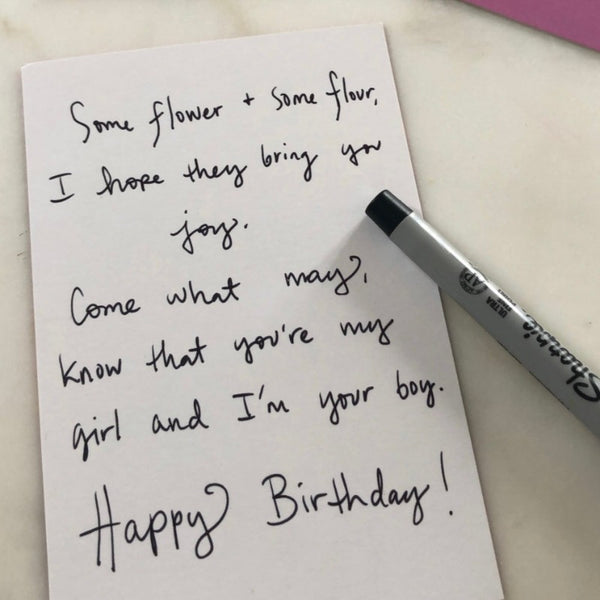 Some flower + some flour,
I hope they bring you
joy.
Come what may,
know that you're my
girl and I'm your boy.
Happy Birthday!
Sharpie
ULTRA
AP